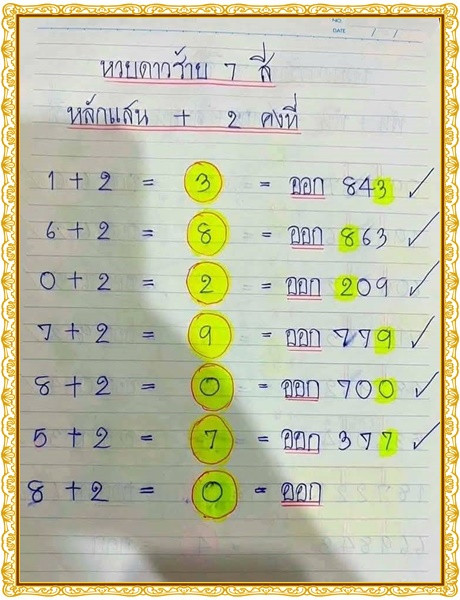 NO.
DATE / /
หวยดาวร้าย 7 สี
หลักแสน + 2 คงที่
1 + 2 = 3 = ออก 843 ✓
6 + 2 = 8 = ออก 863 ✓
0 + 2 = 2 = ออก 209 ✓
7 + 2 = 9 = ออก 779 ✓
8 + 2 = 0 = ออก 700 ✓
5 + 2 = 7 = ออก 377 ✓
8 + 2 = 0 = ออก